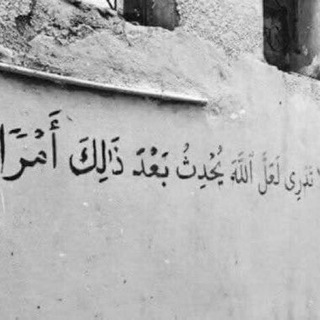 تَدْرِى لَعَلَّ ٱللَّهَ يُحْدِثُ بَعْدَ ذَٰلِكَ أَمْرًا